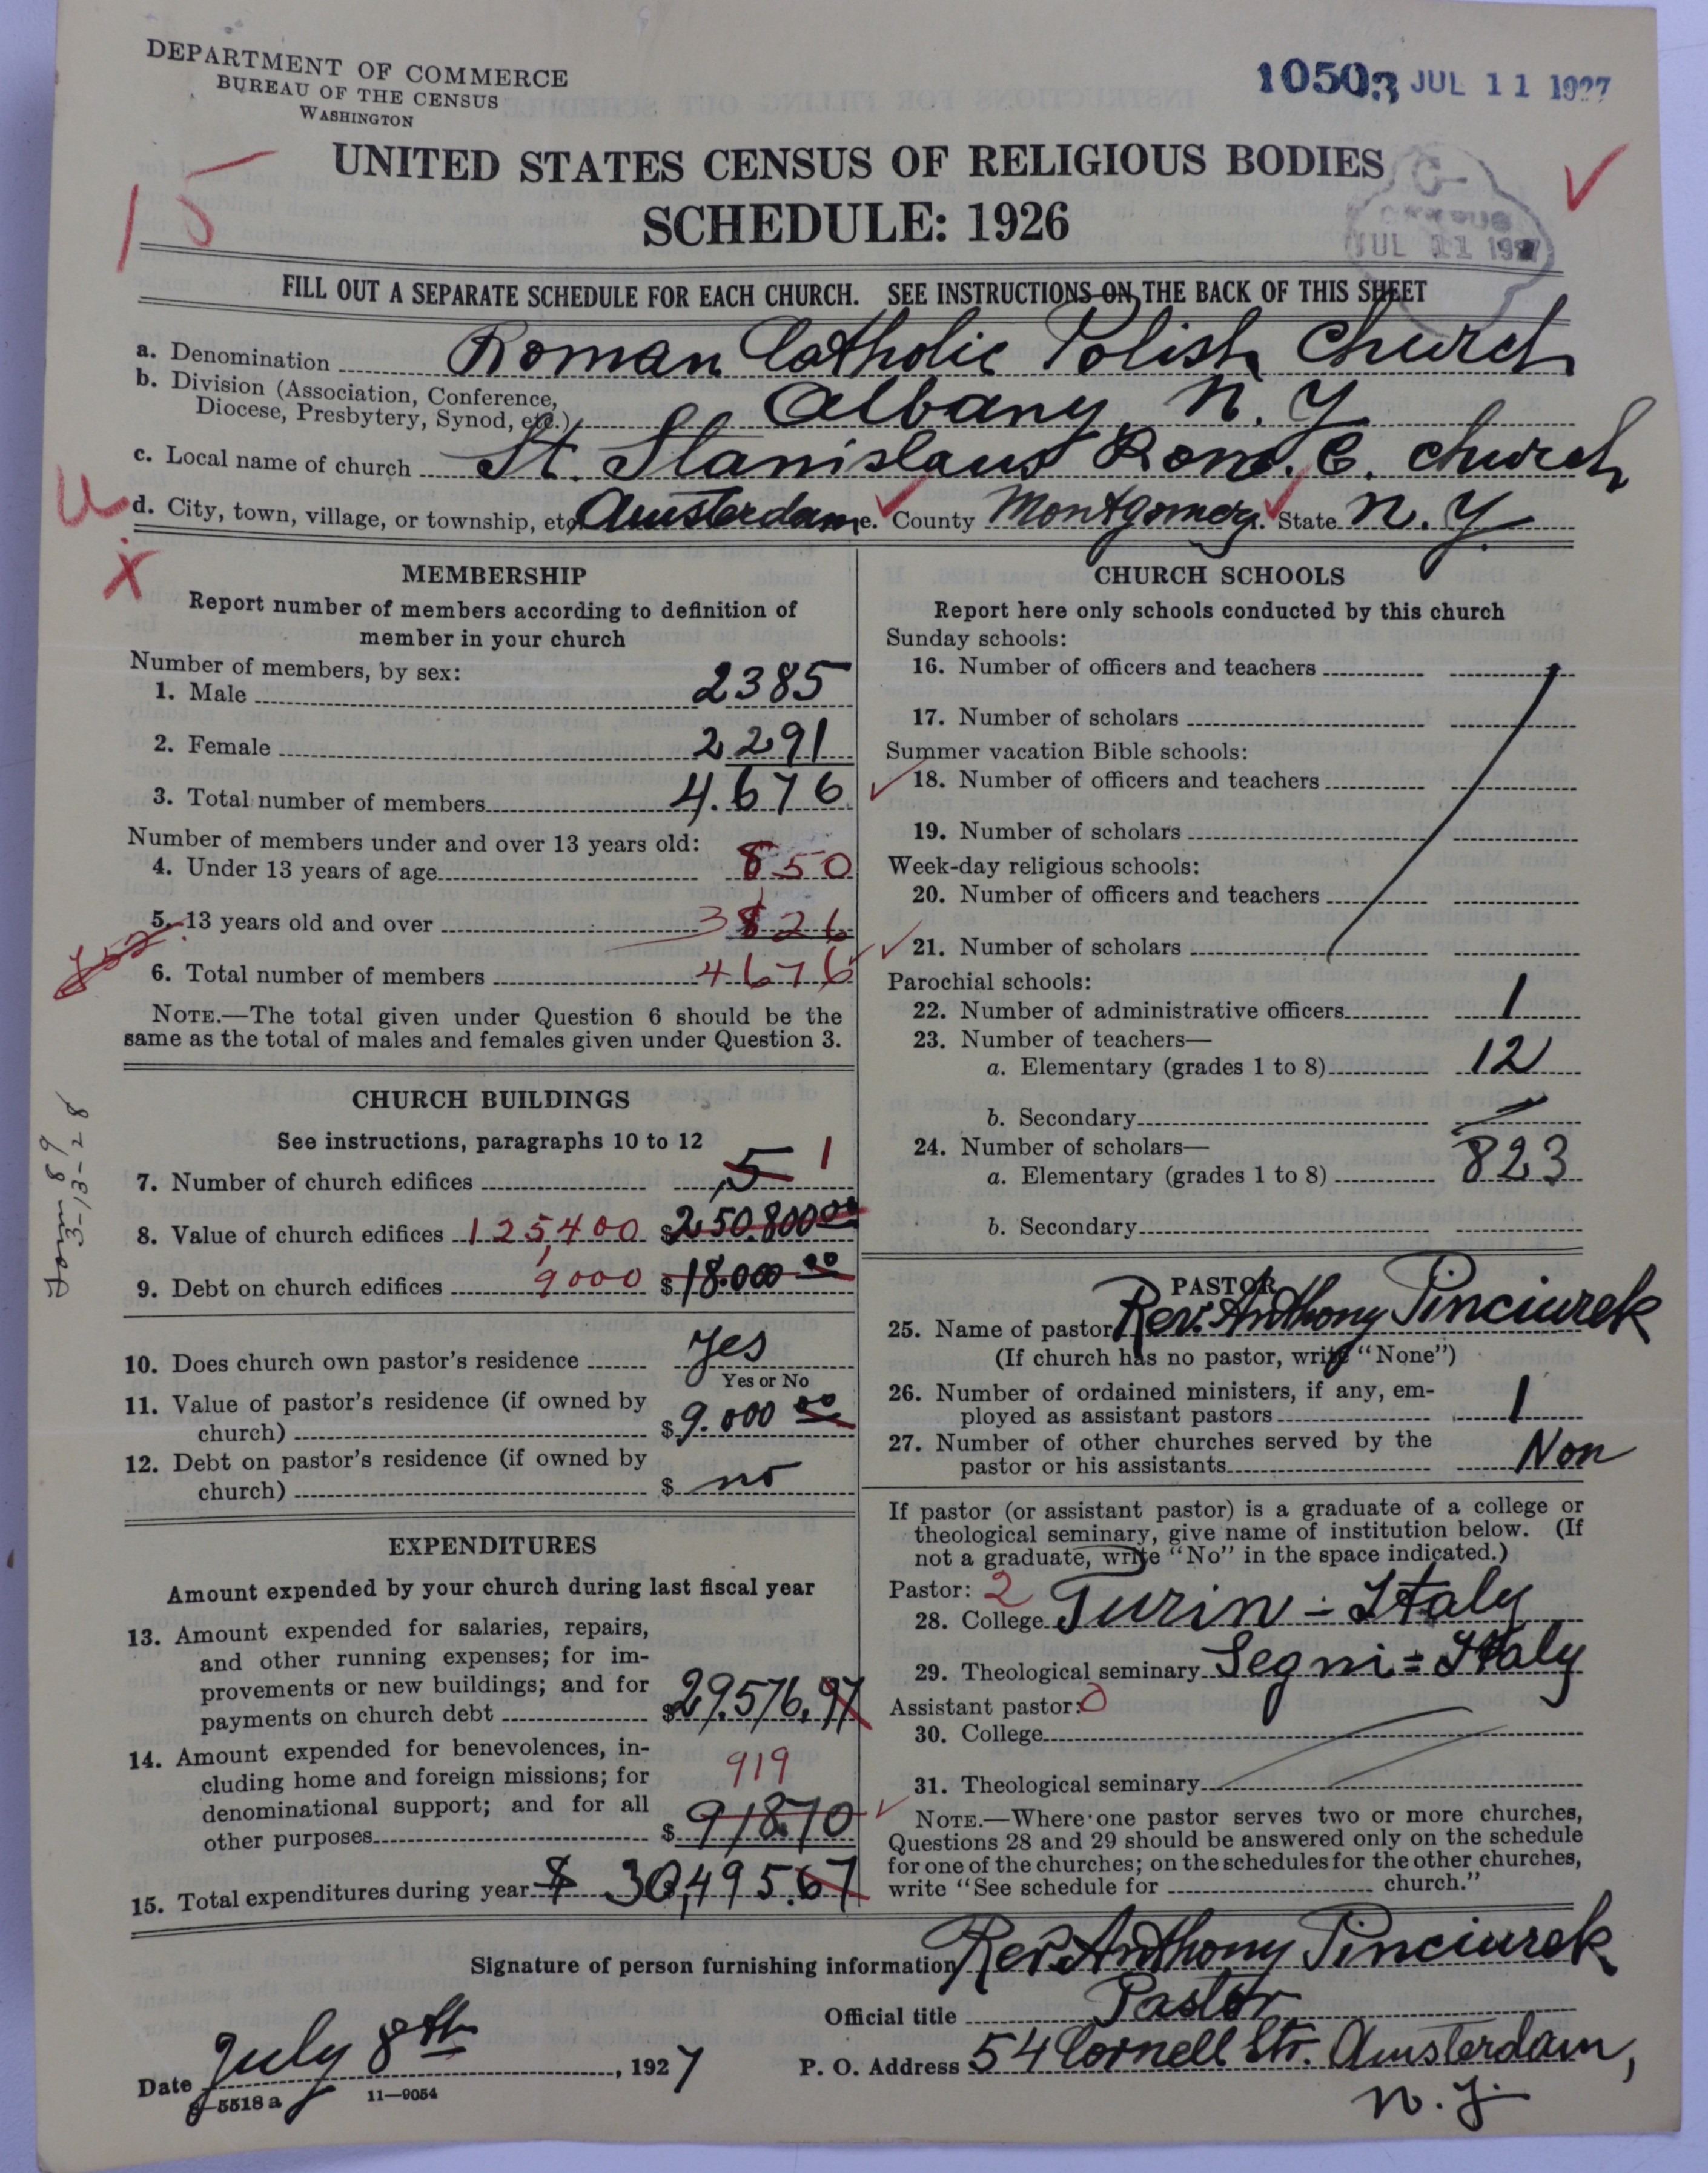 DEPARTMENT OF COMMERCE
BUREAU OF THE CENSUS
WASHINGTON
10503 JUL 11 1927
15
UNITED STATES CENSUS OF RELIGIOUS BODIES
SCHEDULE: 1926
JUL 11 1927
FILL OUT A SEPARATE SCHEDULE FOR EACH CHURCH. SEE INSTRUCTIONS ON THE BACK OF THIS SHEET
a. Denomination Roman Catholic Polish Church
b. Division (Association, Conference,
Diocese, Presbytery, Synod, etc.) Albany N. Y.
c. Local name of church St. Stanislaus Rom. C. church
d. City, town, village, or township, etc. Amsterdam e. County Montgomery. State N. Y.
MEMBERSHIP
Report number of members according to definition of
member in your church
Number of members, by sex:
1. Male 2385
2. Female 2291
3. Total number of members 4.676
Number of members under and over 13 years old:
4. Under 13 years of age 850
5. 13 years old and over 3826
6. Total number of members 4676
NOTE.—The total given under Question 6 should be the
same as the total of males and females given under Question 3.
CHURCH BUILDINGS
See instructions, paragraphs 10 to 12
7. Number of church edifices 5 1
8. Value of church edifices 125,400 $250.800 00
9. Debt on church edifices 9000 $18.000 00
Form 89
3-13-28
10. Does church own pastor's residence Yes
Yes or No
11. Value of pastor's residence (if owned by
church) $9.000 00
12. Debt on pastor's residence (if owned by
church) $ no
EXPENDITURES
Amount expended by your church during last fiscal year
13. Amount expended for salaries, repairs,
and other running expenses; for im-
provements or new buildings; and for
payments on church debt $29.576.97
14. Amount expended for benevolences, in-
cluding home and foreign missions; for 919
denominational support; and for all
other purposes $ 918.70
15. Total expenditures during year $ 30,495.67
CHURCH SCHOOLS
Report here only schools conducted by this church
Sunday schools:
16. Number of officers and teachers
17. Number of scholars
Summer vacation Bible schools:
18. Number of officers and teachers
19. Number of scholars
Week-day religious schools:
20. Number of officers and teachers
21. Number of scholars
Parochial schools:
22. Number of administrative officers 1
23. Number of teachers—
a. Elementary (grades 1 to 8) 12
b. Secondary
24. Number of scholars—
a. Elementary (grades 1 to 8) 823
b. Secondary
PASTOR
25. Name of pastor Rev. Anthony Pinciurek
(If church has no pastor, write "None")
26. Number of ordained ministers, if any, em-
ployed as assistant pastors 1
27. Number of other churches served by the
pastor or his assistants Non
If pastor (or assistant pastor) is a graduate of a college or
theological seminary, give name of institution below. (If
not a graduate, write "No" in the space indicated.)
Pastor: 2
28. College Turin - Italy
29. Theological seminary Segni - Italy
Assistant pastor: 0
30. College
31. Theological seminary
NOTE.—Where one pastor serves two or more churches,
Questions 28 and 29 should be answered only on the schedule
for one of the churches; on the schedules for the other churches,
write "See schedule for church."
Signature of person furnishing information Rev. Anthony Pinciurek
Official title Pastor
Date July 8th, 1927
P. O. Address 54 Cornell Str. Amsterdam,
N. Y.
8-5518 a 11-9054